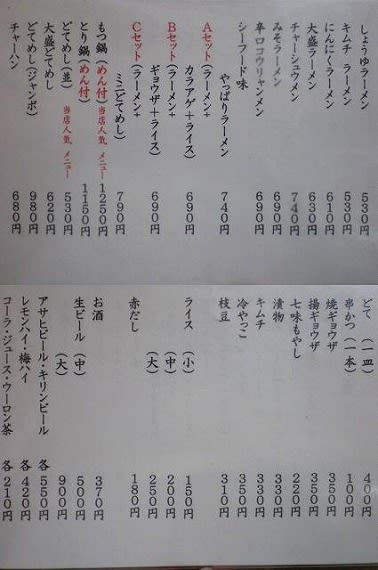 しょうゆラーメン 530円
キムチ ラーメン 530円
にんにくラーメン 610円
大盛ラーメン 630円
チャーシュウメン 740円
みそラーメン 690円
辛口コウリャンメン 690円
シーフード味
やっぱりラーメン 740円
Aセット(ラーメン+
カラアゲ+ライス) 690円
Bセット(ラーメン+
ギョウザ+ライス) 690円
Cセット(ラーメン+
ミニどてめし) 790円
もつ鍋(めん付) 当店人気 メニュー 1250円
とり鍋(めん付) 1150円
どてめし(並) 当店人気 メニュー 530円
大盛どてめし 620円
どてめし(ジャンボ) 980円
チャーハン 680円
どて (一皿) 400円
串かつ(一本) 100円
焼ギョウザ 350円
揚ギョウザ 350円
七味もやし 220円
漬物 330円
キムチ 330円
冷やっこ 350円
枝豆 310円
ライス (小) 150円
(中) 200円
(大) 250円
赤だし 180円
お酒 370円
生ビール (中) 500円
(大) 900円
アサヒビール・キリンビール 各550円
レモンハイ・梅ハイ 各420円
コーラ・ジュース・ウーロン茶 各210円